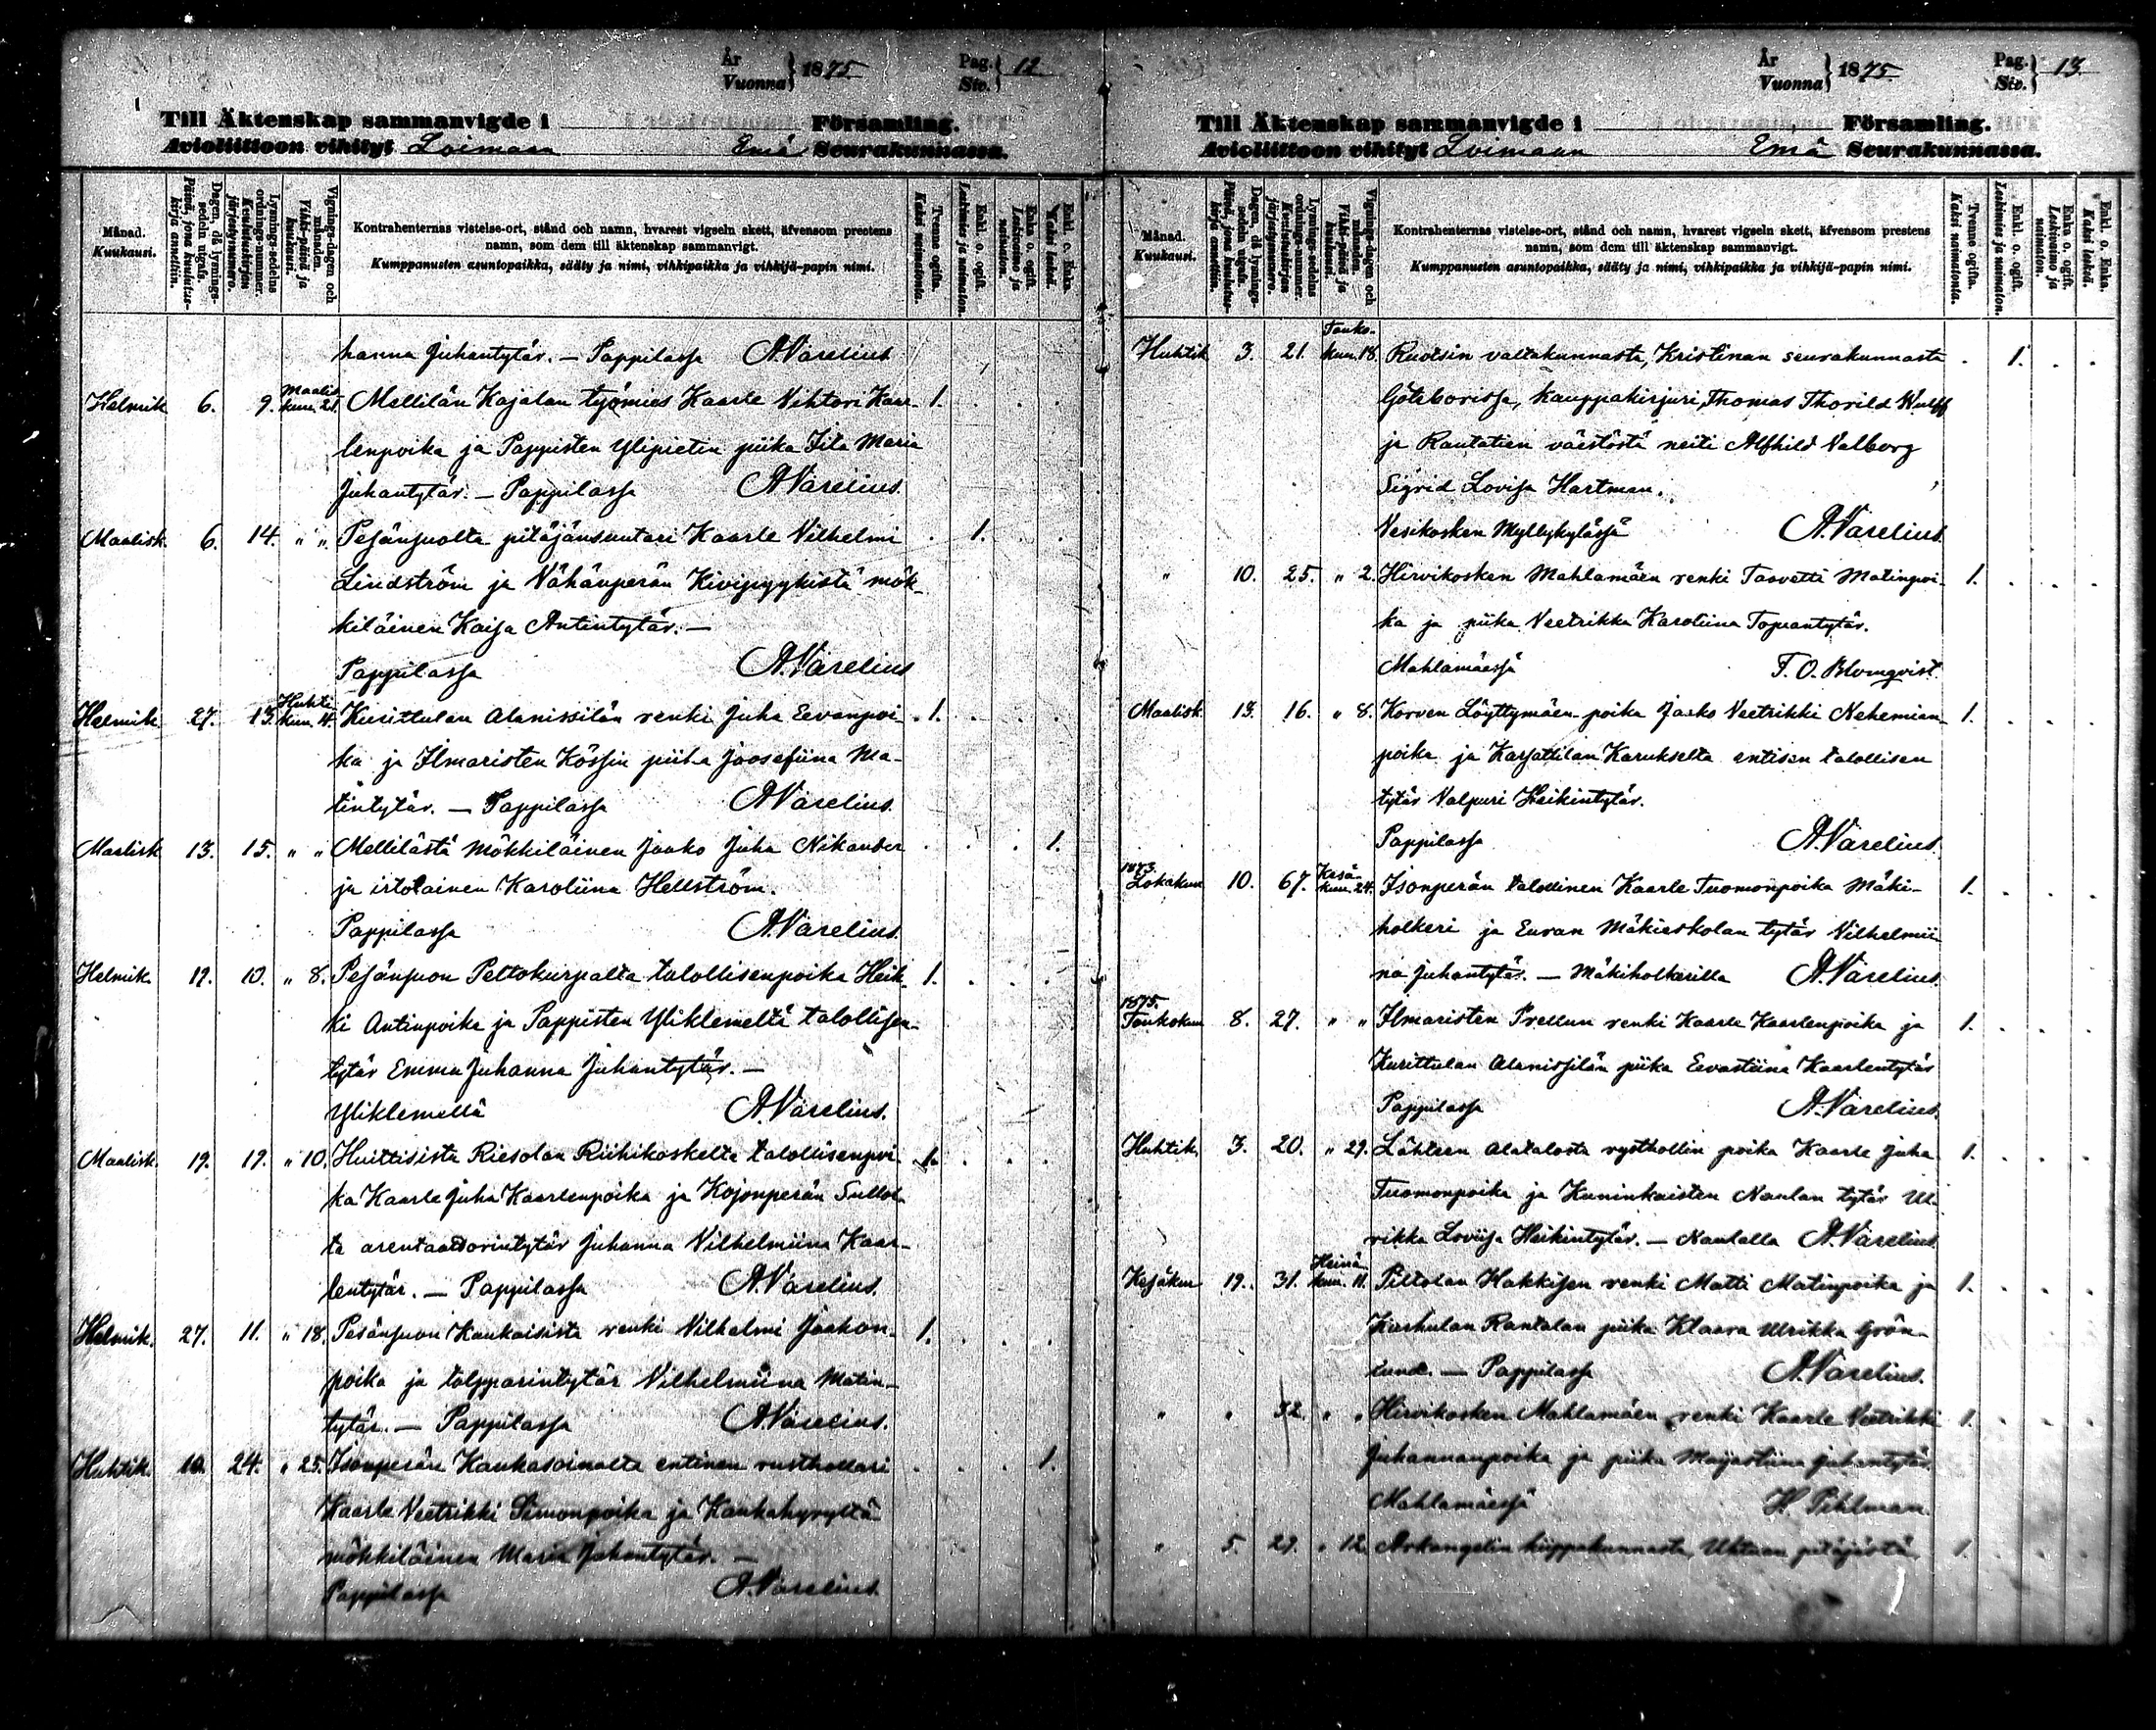 År
Vuonna } 1875 Pag. Siv. } 12
Till Äktenskap sammanvigde i Församling.
Avioliittoon vihityt Loimaan Emä Seurakunnassa.
Månad. Kuukausi.
Dagen, då lysnings-sedeln utgafs. Päivä, jona kuulutus-kirja annettiin.
Lysnings-sedelns ordnings-nummer. Kuulutuskirjan järjestysnumero.
Vignings-dagen och månaden. Vihki-päivä ja kuukausi.
Kontrahenternas vistelse-ort, stånd och namn, hvarest vigseln skett, äfvensom prestens
namn, som dem till äktenskap sammanvigt.
Kumppanusten asuntopaikka, sääty ja nimi, vihkipaikka ja vihkijä-papin nimi.
Tvenne ogifta. Kaksi naimatonta.
Enkl. o. ogift. Leskimies ja naimaton.
Enka o. ogift. Leskivaimo ja naimaton.
Enkl. o. Enka. Kaksi leskeä.
hanna Juhantytär. — Pappilassa A. Varelius
Helmik. 6. 9. Maaliskuun 21. Mellilän Kajalan työmies Kaarle Vihtori Kaar- 1.
lenpoika ja Pappisten Ylipietin piika Iita Maria
Juhantytär. — Pappilassa A. Varelius.
Maalisk. 6. 14. " " Pesänsuolta pitäjänsuutari Kaarle Vilhelmi 1.
Lindström ja Vähänperän Kivipyykistä mök-
kiläinen Kaisa Antintytär. —
Pappilassa A. Varelius
Helmik. 27. 13. Huhtikuun 4. Kurittulan Alanissilän renki Juha Eevanpoi- 1.
ka ja Ilmaristen Kössin piika Joosefiina Ma-
tintytär. — Pappilassa A. Varelius.
Maalisk. 13. 15. " " Mellilästä mökkiläinen Jaako Juha Nikander 1.
ja irtolainen Karoliina Hellström.
Pappilassa A. Varelius.
Helmik. 10. " 8. Pesänsuon Peltokurpalta talollisenpoika Heik- 1.
ki Antinpoika ja Pappisten Yliklemeltä talollisen-
tytär Emma Juhanna Juhantytär. —
Yliklemellä A. Varelius.
Maalisk. 19. " 10. Huittisista Riesolan Riihikoskelta talollisenpoi- 1.
ka Kaarle Juha Kaarlenpoika ja Kojonperän
ta arentaattorintytär Juhanna Vilhelmiina Kaar-
lentytär. — Pappilassa A. Varelius.
Helmik. 27. 11. " 18. Pesänsuon Kaukaisista renki Vilhelmi Jaakon- 1.
poika ja tolpparintytär Vilhelmiina Matin-
tytär. — Pappilassa A. Varelius.
Huhtik. 10. 24. " 25. Isonperän entinen rusthollari 1.
Kaarle Veetrikki Simonpoika ja Kaukahyryltä
mökkiläinen Maria Juhantytär. —
Pappilassa A. Varelius.
År
Vuonna } 1875 Pag. Siv. } 13
Till Äktenskap sammanvigde i Församling.
Avioliittoon vihityt Loimaan Emä Seurakunnassa.
Månad. Kuukausi.
Dagen, då lysnings-sedeln utgafs. Päivä, jona kuulutus-kirja annettiin.
Lysnings-sedelns ordnings-nummer. Kuulutuskirjan järjestysnumero.
Vignings-dagen och månaden. Vihki-päivä ja kuukausi.
Kontrahenternas vistelse-ort, stånd och namn, hvarest vigseln skett, äfvensom prestens
namn, som dem till äktenskap sammanvigt.
Kumppanusten asuntopaikka, sääty ja nimi, vihkipaikka ja vihkijä-papin nimi.
Tvenne ogifta. Kaksi naimatonta.
Enkl. o. ogift. Leskimies ja naimaton.
Enka o. ogift. Leskivaimo ja naimaton.
Enkl. o. Enka. Kaksi leskeä.
Huhtik. 3. 21. Toukokuun 18. Ruotsin valtakunnasta, Kristinan seurakunnasta 1.
Göteborissa, kauppakirjuri, Thomas Thorild Wulff
ja Rautatien väestöstä neiti Alfhild Valborg
Sigrid Lovisa Hartman.
Vesikosken Myllykylässä A. Varelius.
" 10. 25. " 2. Hirvikosken Mahlamäen renki Taavetti Matinpoi- 1.
ka ja piika Veetrikka Karoliina Topiantytär.
Mahlamäessä F. O. Blomqvist.
Maalisk. 13. 16. " 8. Korven Löyttymäen poika Jaako Veetrikki Nehemian- 1.
poika ja Karsattilan Karukselta entisen talollisen
tytär Valpuri Heikintytär.
Pappilassa A. Varelius.
1873. Lokakuu 10. 67. Kesäkuun 24. Isonperän talollinen Kaarle Tuomonpoika Mäki- 1.
holkeri ja Euran Mäkieskolan tytär Vilhelmii-
na Juhantytär. — Mäkiholkerilla A. Varelius.
1875. Toukokuu 8. 27. " " Ilmaristen Prellun renki Kaarle Kaarlenpoika ja 1.
Kurittulan Alanissilän piika Eevastiina Kaarlentytär
Pappilassa A. Varelius.
Huhtik. 3. 20. " 29. Lähteen Alatalosta rusthollin poika Kaarle Juha 1.
Tuomonpoika ja Kuninkaisten Nautan tytär Ul-
rikka Loviisa Heikintytär. — Nautalla A. Varelius.
Kesäkuu 19. 31. Heinäkuun 11. Piltolan Hakkisen renki Matti Matinpoika ja 1.
Karhulan Rantalan piika Klaara Ulrikka Grön-
lund. — Pappilassa A. Varelius.
" " 32. " " Hirvikosken Mahlamäen renki Kaarle Veetrikki 1.
Juhannanpoika ja piika Maijastiina Juhantytär.
Mahlamäessä H. Pihlman.
" 5. 29. " 12. Arkangelin hiippakunnasta, Uhtuan pitäjästä 1.